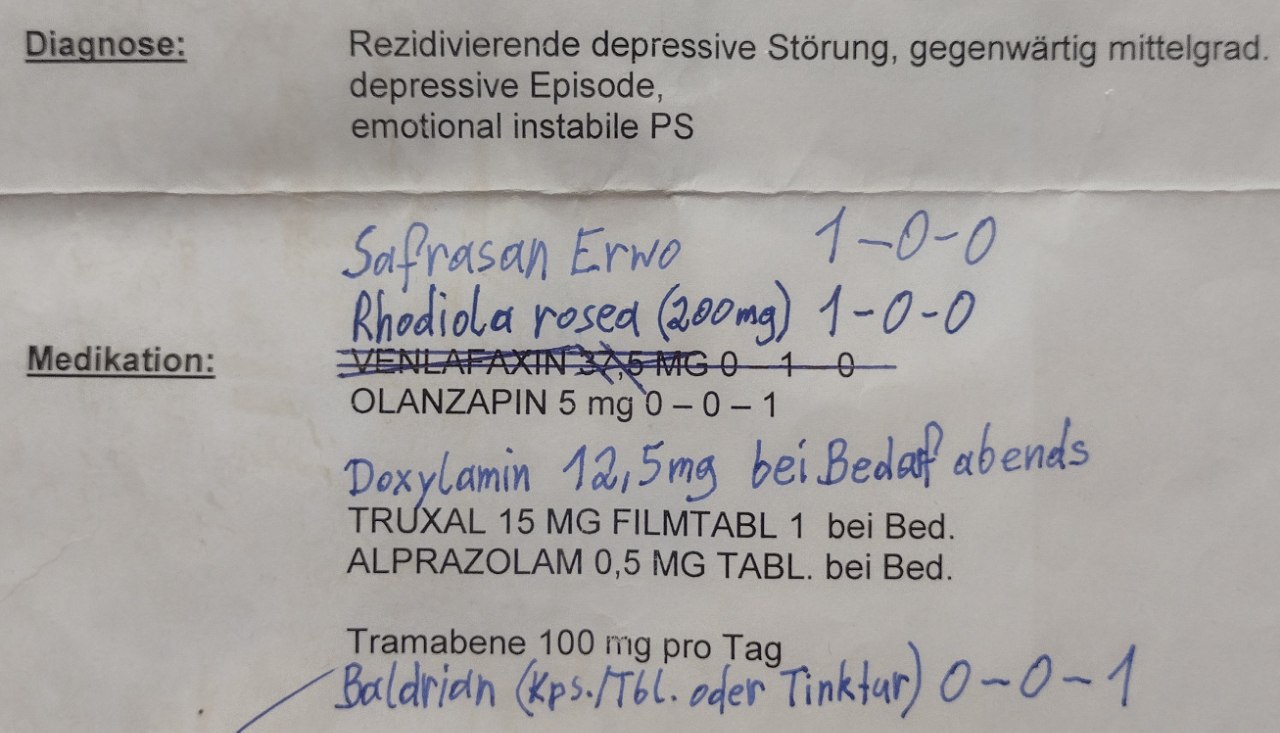 Diagnose: Rezidivierende depressive Störung, gegenwärtig mittelgrad.
depressive Episode,
emotional instabile PS
Safrasan Erwo 1-0-0
Rhodiola rosea (200mg) 1-0-0
Medikation: VENLAFAXIN 37,5 MG 0 – 1 – 0
OLANZAPIN 5 mg 0 – 0 – 1
Doxylamin 12,5mg bei Bedarf abends
TRUXAL 15 MG FILMTABL 1 bei Bed.
ALPRAZOLAM 0,5 MG TABL. bei Bed.
Tramabene 100 mg pro Tag
Baldrian (Kps./Tbl. oder Tinktur) 0-0-1